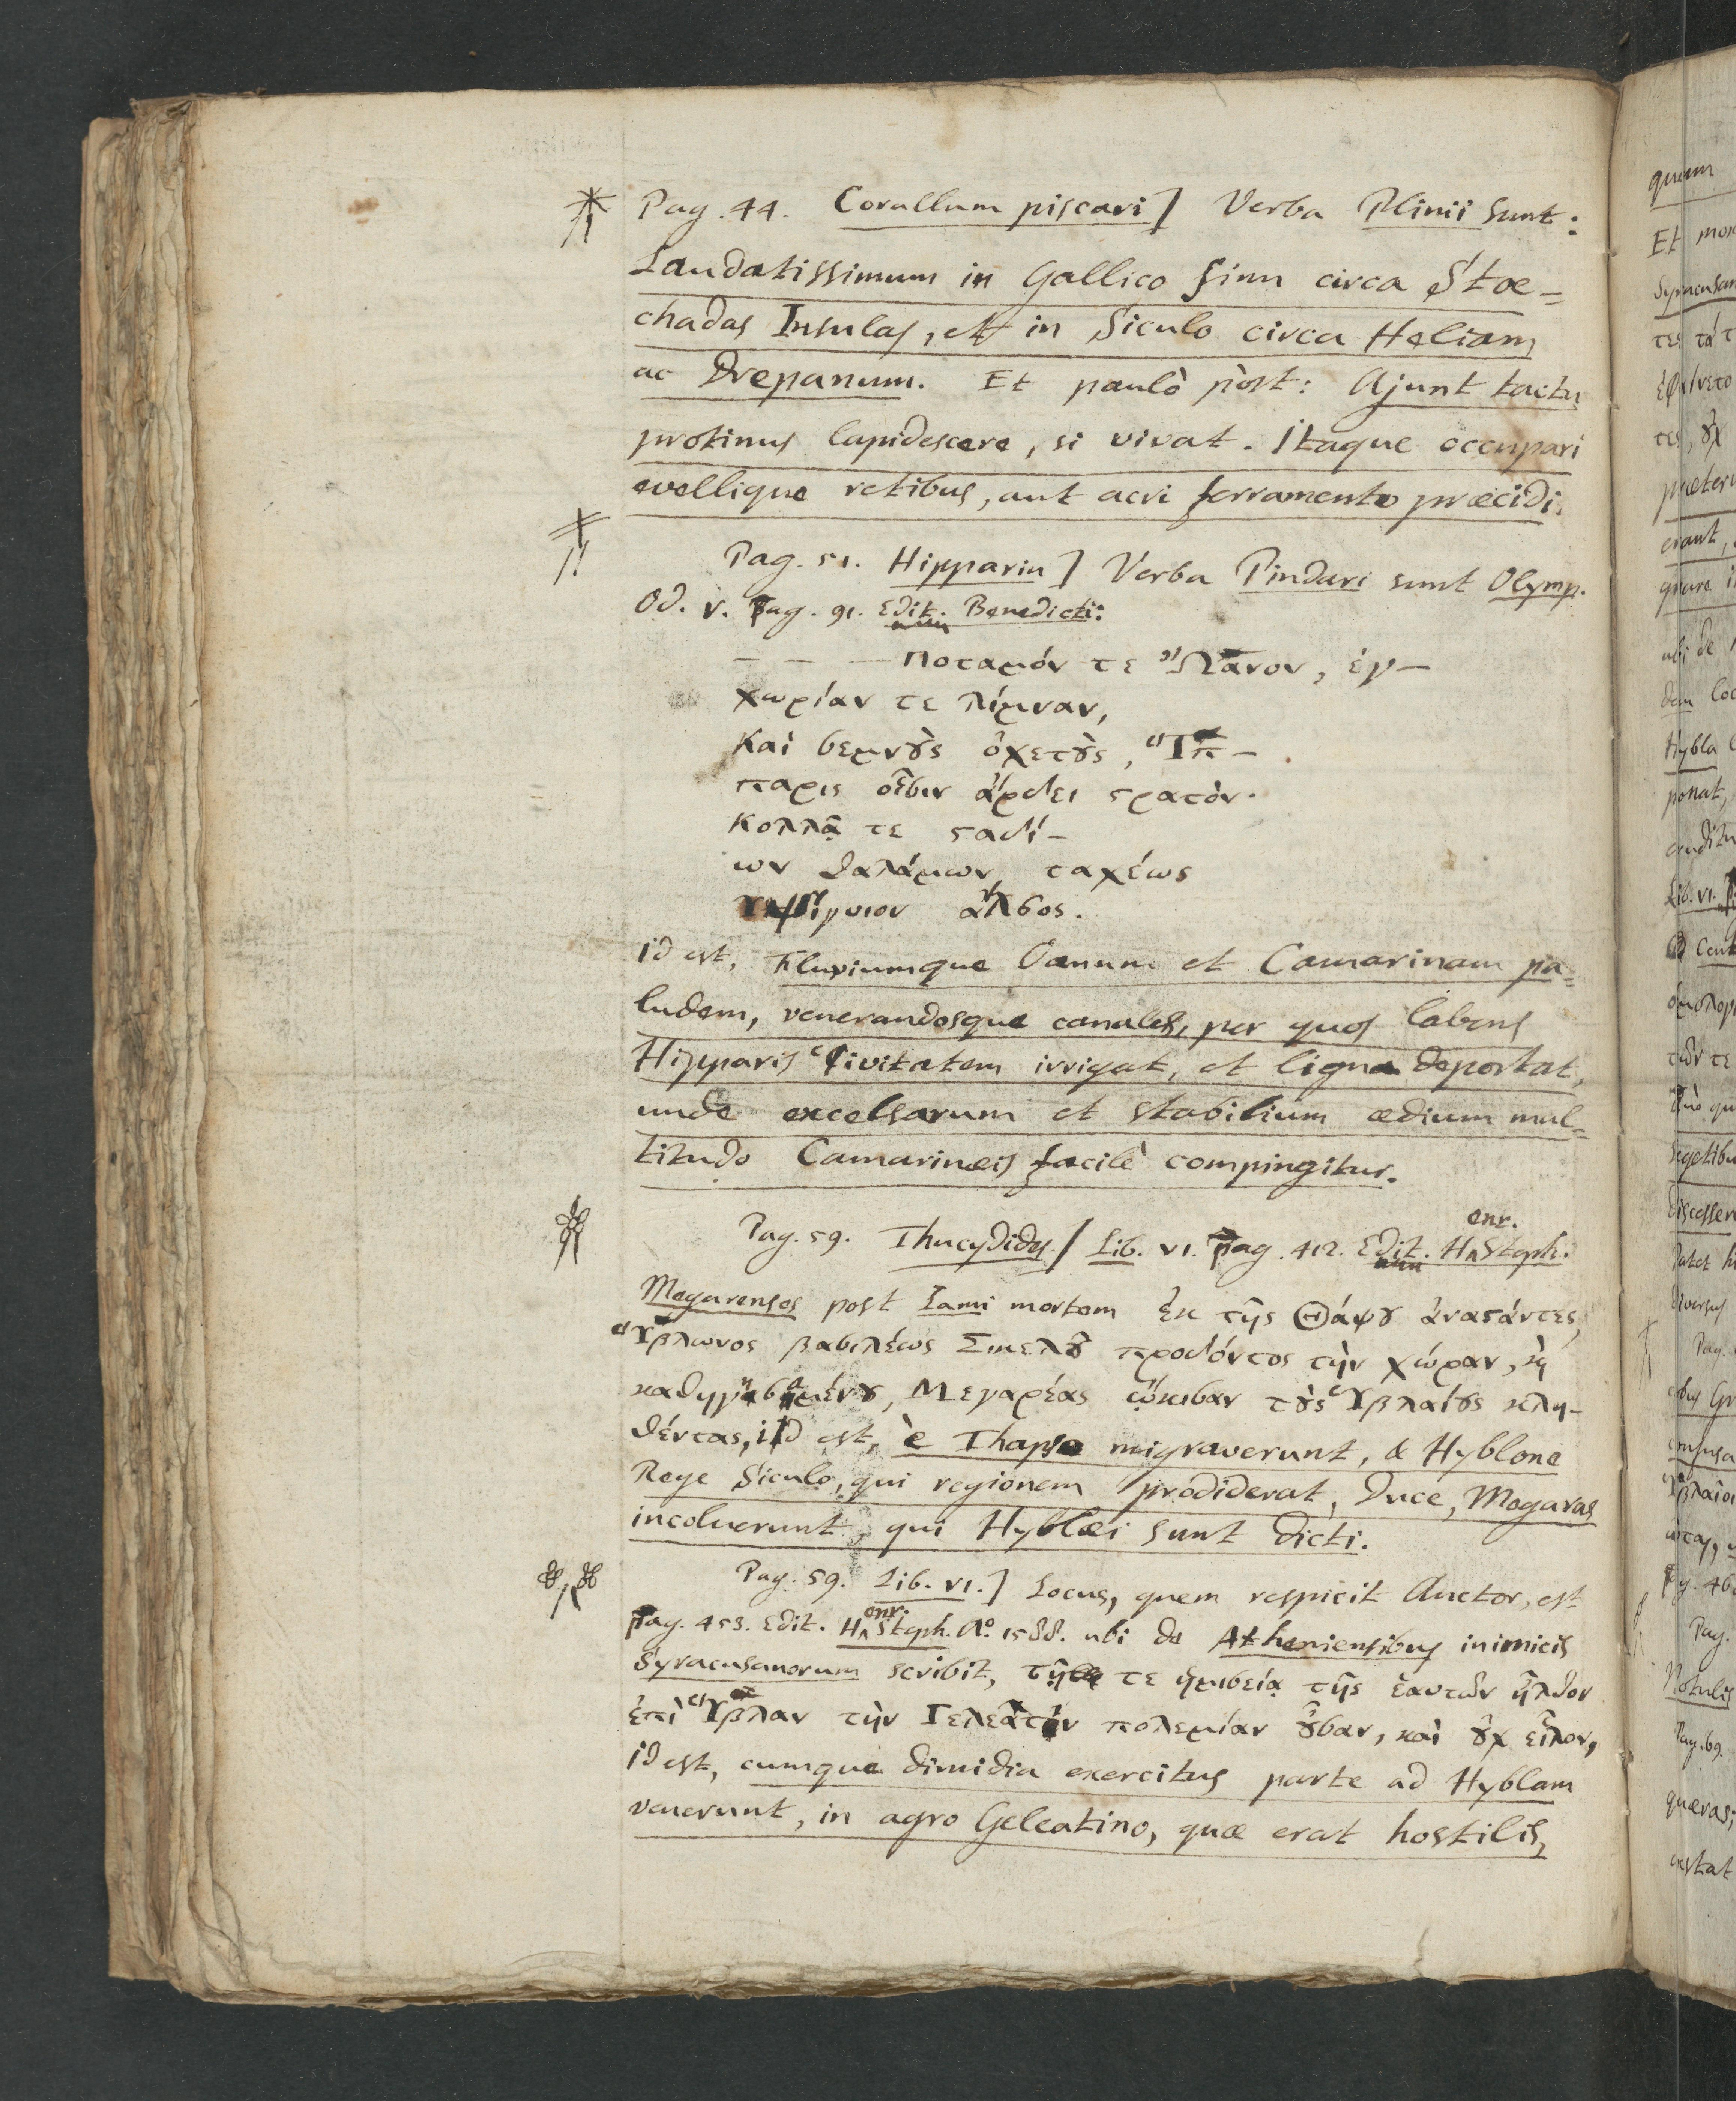 Pag. 44. Corallum piscari] Verba Plinii sunt:
Laudatissimum in Gallico sinu circa Stoe=
chadas Insulas, et in Siculo circa Heliam
ac Drepanum. Et paulò pòst: Ajunt tactu
protinus lapidescere, si vivat. Itaque occupari
evellique retibus, aut acri ferramento præcidi.
Pag. 51. Hipparin] Verba Pindari sunt Olymp.
Od. V. Pag. 91. Edit. Benedicti:
— — — Ποταμόν τε Ὤανον, ἐγ—
χωρίαν τε λίμναν,
Καὶ σεμνȣ̀ς ὀχετȣ̀ς, Ἵπ—
παρις οἷσιν ἄρδει ϛρατόν.
Κολλᾷ τε ϛαδί—
ων θαλάμων ταχέως
Ὑψίγυιον ἄλσος.
id est, Fluviumque Oanum et Camarinam pa=
ludem, venerandosque canales, per quos labens
Hipparis Civitatem irrigat, et ligna deportat,
unde excelsarum et stabilium ædium mul=
titudo Camarinæis facilè compingitur.
Pag. 59. Thucydides] Lib. VI. Pag. 412. Edit. Henr. Steph.
Megarenses post Lami mortem ἐκ τῆς Θάψȣ ἀναϛάντες,
Ὕβλωνος βασιλέως Σικελȣ͂ προδόντος τὴν χώραν, ϗ
καθηγησαμένȣ, Μεγαρέας ᾤκισαν τȣ̀ς Ὑβλαίȣς κλη—
θέντας, id est, è Thapso migraverunt, & Hyblone
Rege Siculo, qui regionem prodiderat, Duce, Megaras
incoluerunt, qui Hyblæi sunt dicti.
Pag. 59. Lib. VI.] Locus, quem respicit Auctor, est
Pag. 453. Edit. Henr. Steph. Aº. 1588. ubi de Atheniensibus inimicis
Syracusanorum scribit, τῇ τε ἡμισείᾳ τῆς ἑαυτῶν ἦλθον
ἐπὶ Ὕβλαν τὴν Γελεᾶτιν πολεμίαν ȣ͂̓σαν, καὶ ȣ̓χ εἷλον,
id est, cumque dimidia exercitus parte ad Hyblam
venerunt, in agro Geleatino, quæ erat hostilis,